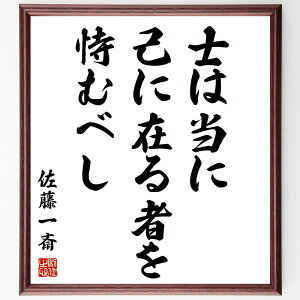 士は当に
己に在る者を
恃むべし
佐藤一斎